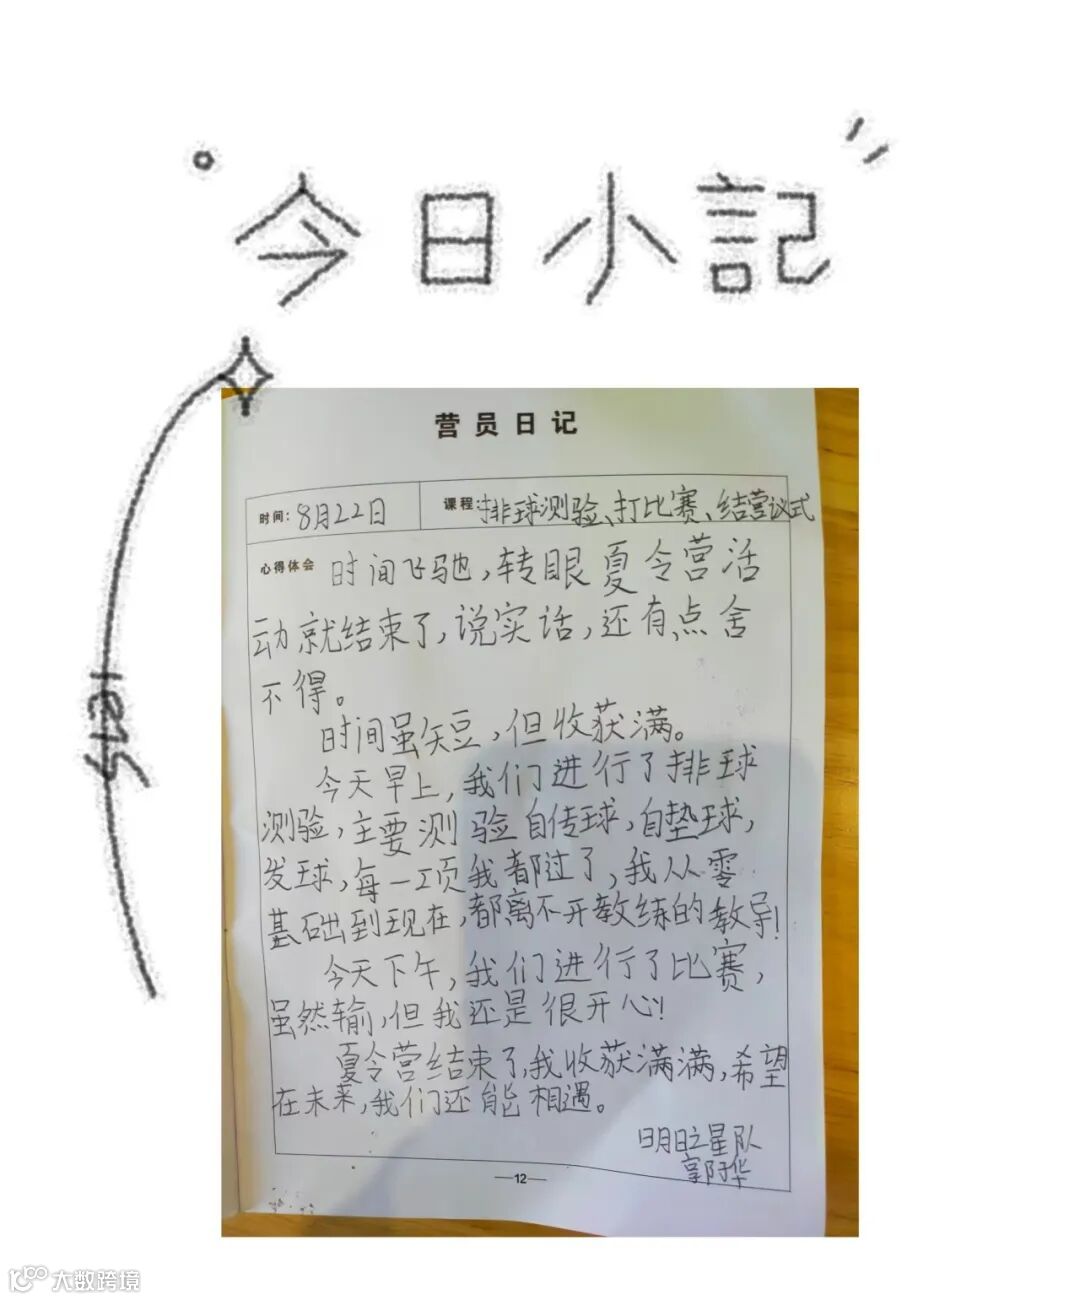 今日小記
营员日记
时间：8月22日
课程：排球测验、打比赛、结营议式
心得体会 时间飞驰，转眼夏令营活
动就结束了，说实话，还有点舍
不得。
时间虽矢豆，但收获满。
今天早上，我们进行了排球
测验，主要测验自传球，自垫球，
发球，每一项我都过了，我从零
基础到现在，都离不开教练的教导！
今天下午，我们进行了比赛，
虽然输，但我还是很开心！
夏令营结束了，我收获满满，希望
在未来，我们还能相遇。
明日之星队
—12—
大数跨境